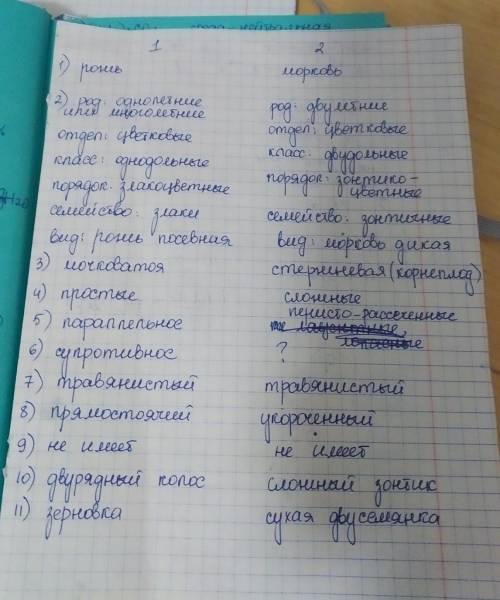 1 2
1) рожь морковь
2) род: однолетние род: двулетние
или многолетние
отдел: цветковые отдел: цветковые
класс: однодольные класс: двудольные
порядок: злакоцветные порядок: зонтико-
цветные
семейство: злаки семейство: зонтичные
вид: рожь посевная вид: морковь дикая
3) мочковатая стержневая (корнеплод)
4) простые сложные
5) параллельное перисто-рассеченные
6) супротивное ?
7) травянистый травянистый
8) прямостоячий укороченный
9) не имеет не имеет
10) двурядный колос сложный зонтик
11) зерновка сухая двусемянка